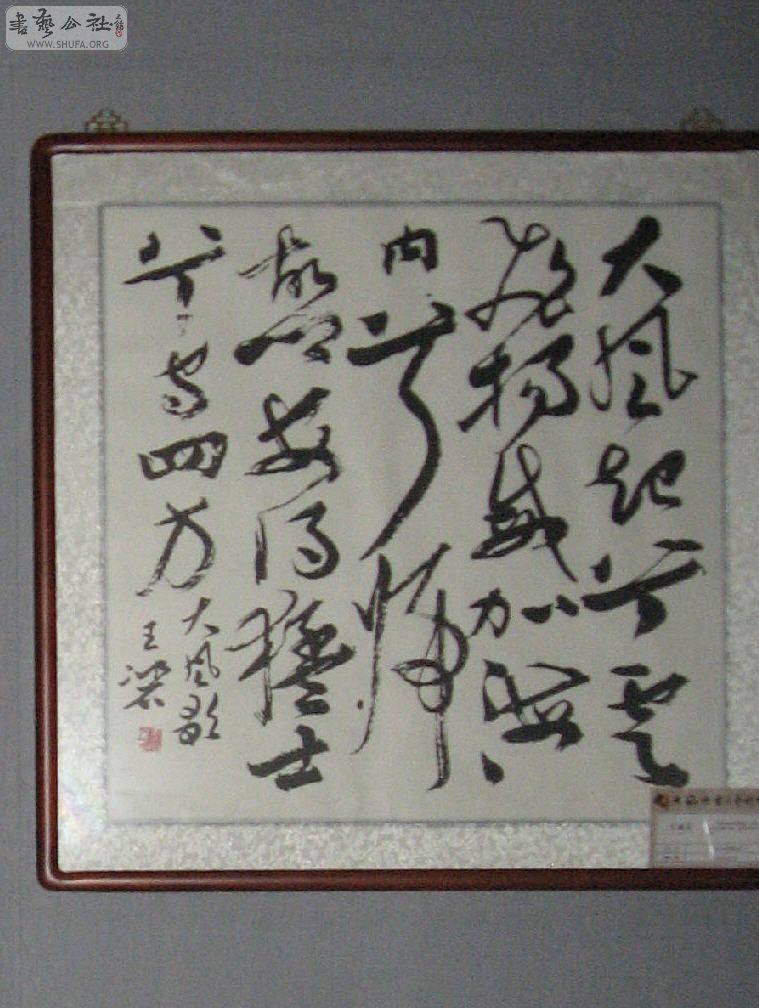 書藝公社
WWW.SHUFA.ORG
大風起兮雲
飛揚威加海
内兮歸
故鄉安得猛士
兮守四方
大風歌
王